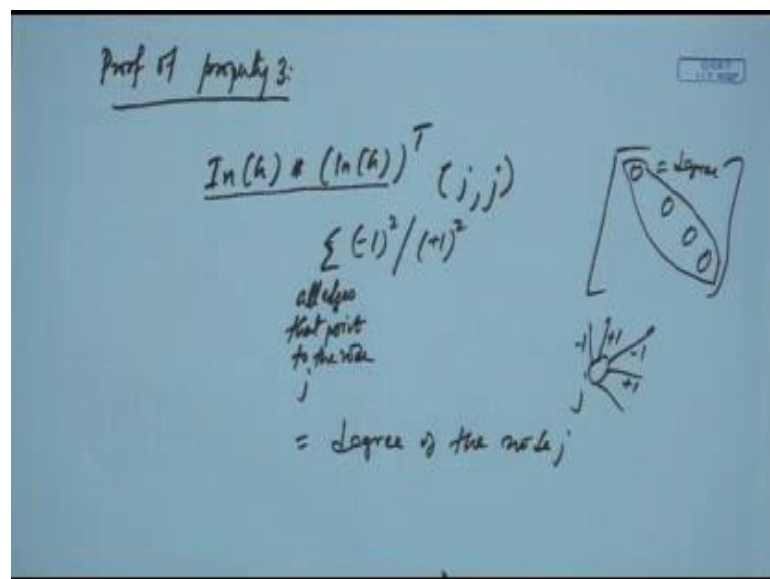 Proof of property 3:
In(G) * (In(G))^T (j,j)
Σ (-1)^2 / (+1)^2
all edges
that point
to the node
j
= degree of the node j
0 = degree
0
0
0
-1 +1 -1
+1
j